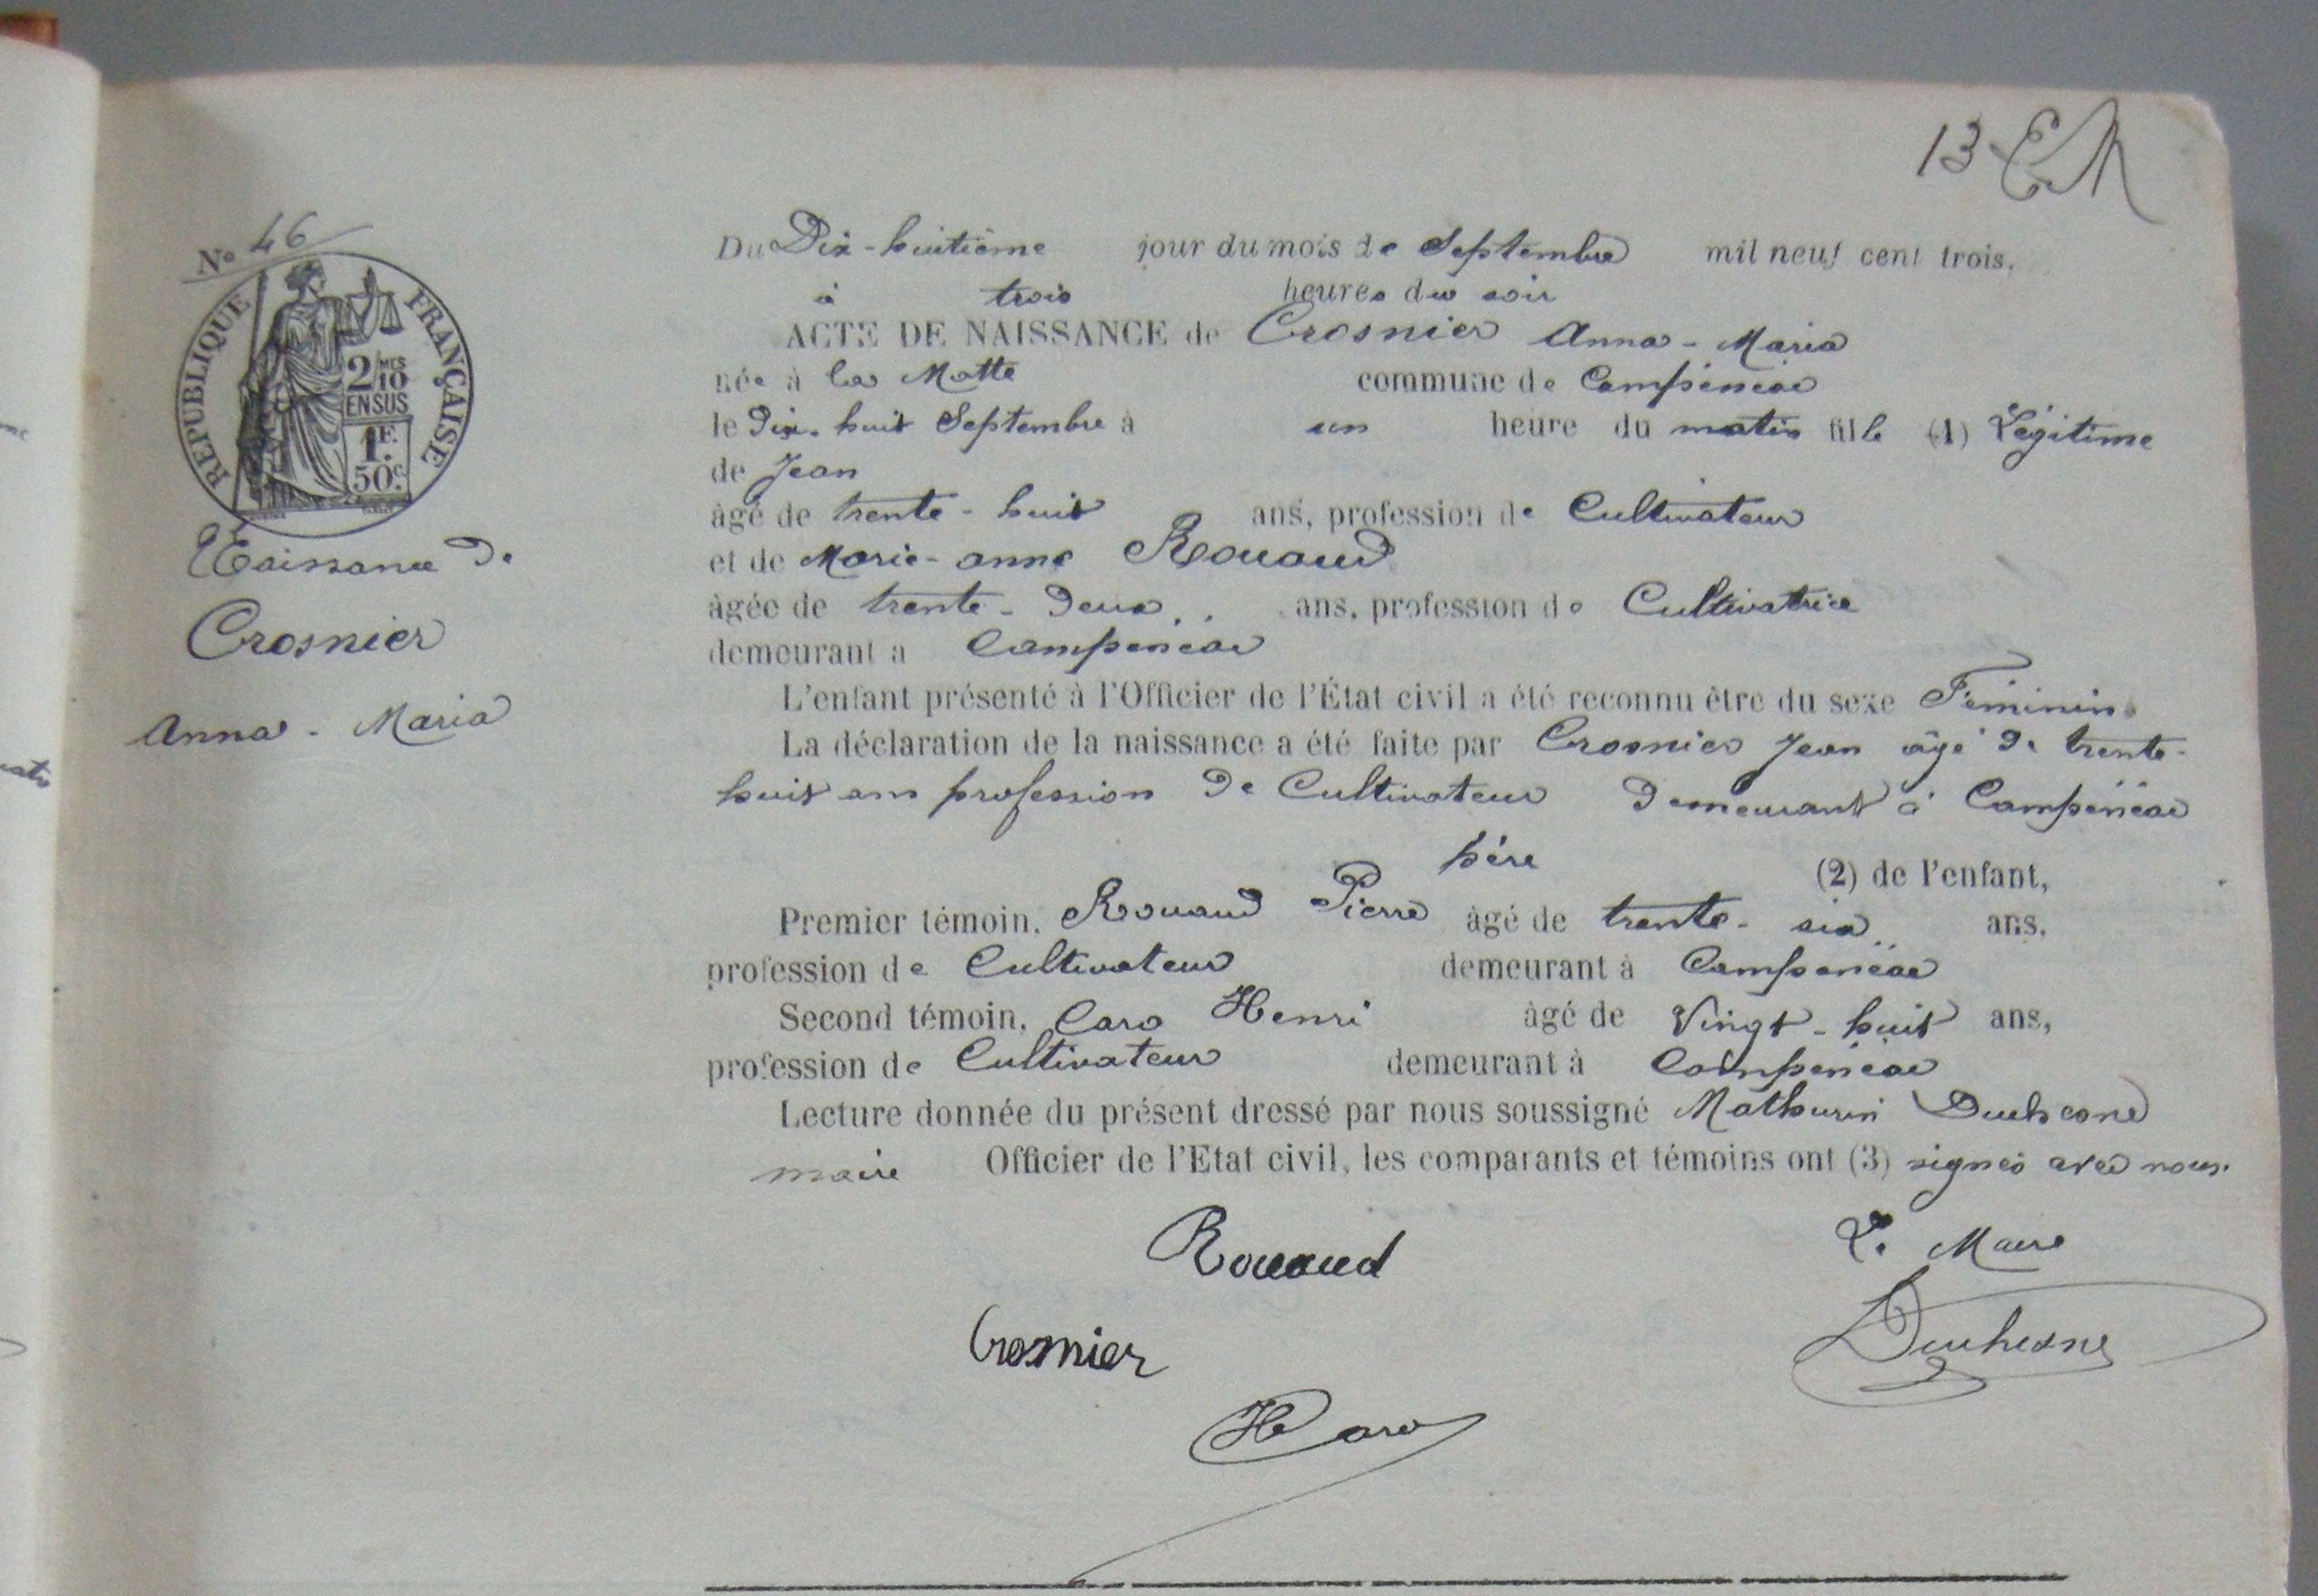 13
N° 46
REPUBLIQUE FRANÇAISE
2/MES 10
EN SUS
1F.
50c.
Naissance de
Crosnier
Anna - Maria
Du Dix-huitième jour du mois de Septembre mil neuf cent trois,
à trois heures du soir
ACTE DE NAISSANCE de Crosnier Anna-Maria
née à la Motte commune de Campénéac
le Dix-huit Septembre à un heure du matin fille (1) Légitime
de Jean
âgé de trente-huit ans, profession de Cultivateur
et de Marie-anne Rouaud
âgée de trente-deux ans, profession de Cultivatrice
demeurant a Campénéac
L'enfant présenté à l'Officier de l'État civil a été reconnu être du sexe Féminin.
La déclaration de la naissance a été faite par Crosnier Jean âgé de trente-
huit ans profession de Cultivateur demeurant à Campénéac
père (2) de l'enfant,
Premier témoin, Rouaud Pierre âgé de trente-six ans,
profession de Cultivateur demeurant à Campénéac
Second témoin, Caro Henri âgé de Vingt-huit ans,
profession de Cultivateur demeurant à Campénéac
Lecture donnée du présent dressé par nous soussigné Mathurin Duchesne
maire Officier de l'Etat civil, les comparants et témoins ont (3) signés avec nous.
Rouaud
Le Maire
Crosnier
Duchesne
H Caro